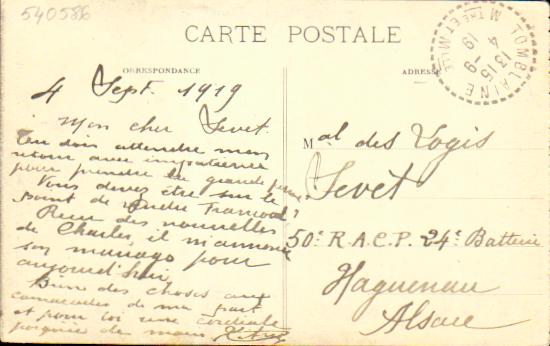 540586
CARTE POSTALE
CORRESPONDANCE
ADRESSE
TOMBLAINE
MTHE ET MLLE
13 15
4 - 9
19
4 Sept. 1919
Mon cher Sevet.
Tu dois attendre mon
retour avec impatience
pour prendre la grande perme
Vous devez être sur le
point de
Reçu des nouvelles
de Charles, il m'annonce
son mariage pour
aujourd'hui
Bien des choses aux
camarades de ma part
et pour toi une cordiale
poignée de main
Mal des Logis
Sevet
50e R.A.C.P. 24e Batterie
Haguenau
Alsace